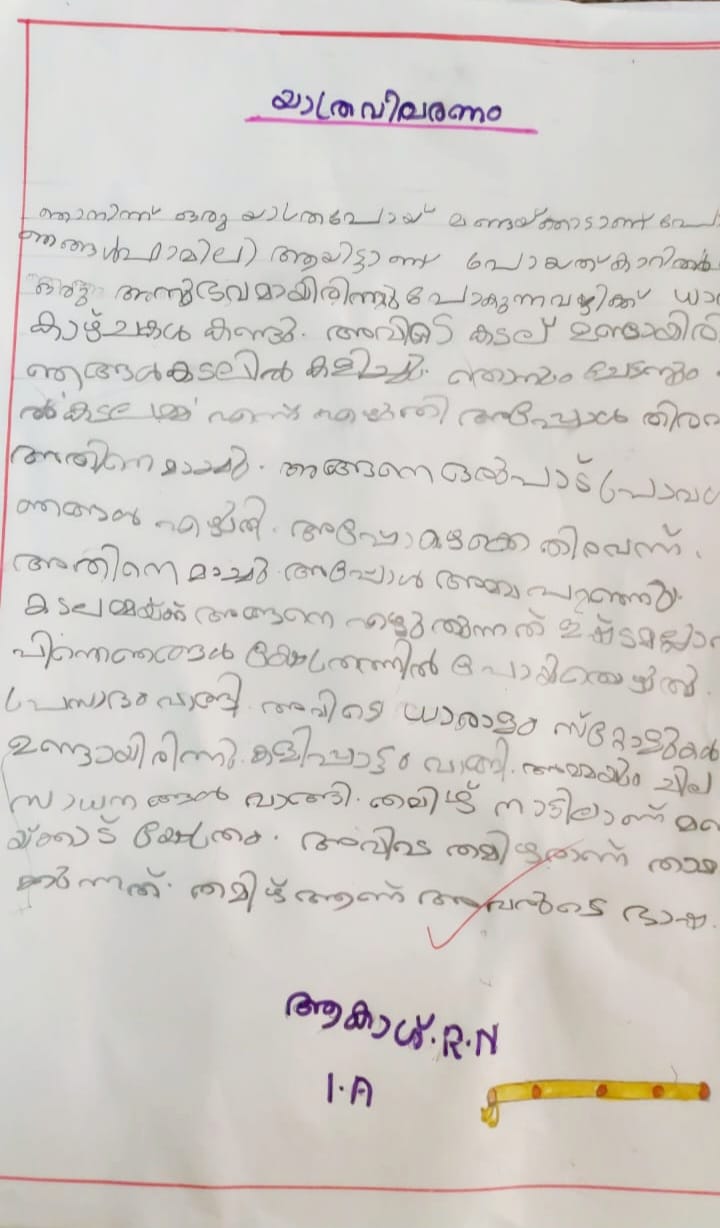 യാത്രവിവരണം
ഞാനിന്ന് ഒരു യാത്രപോയ് മണ്ടയ്ക്കാടാണ് പോ
ഞങ്ങൾഫാമിലി ആയിട്ടാണ് പോയത്കാറിൽ
ഒരു അനുഭവമായിരിന്നു പോകുന്നവഴിക്ക് ധാ
കാഴ്ചകൾ കണ്ടു. അവിടെ കടല് ഉണ്ടായിരി
ഞങ്ങൾകടലിൽ കളിച്ചു. ഞാനും ചേട്ടനും
ൽ കടലമ്മ എന്ന് എഴുതി അപ്പോൾ തിര
അതിനെമാച്ചു. അങ്ങനെ ഒൽപാട് പ്രാവ
ഞങ്ങൾ എഴുതി. അപ്പോഴൊക്കെ തിരവന്ന്.
അതിനെ മാച്ചു. അപ്പോൾ അമ്മ പറഞ്ഞു
കടലമ്മയ്ക്ക് അങ്ങനെ എഴുതുന്നത് ഇഷ്ടമല്ലാ
പിന്നെഞങ്ങൾ ക്ഷേത്രത്തിൽ പോയിതൊഴുതു.
പ്രസാദംവാങ്ങി. അവിടെ ധാരാളം സ്റ്റോളുകൾ
ഉണ്ടായിരിന്നു. കളിപ്പാട്ടം വാങ്ങി. അമ്മയും ചില
സാധനങ്ങൾ വാങ്ങി. തമിഴ് നാട്ടിലാണ് മണ്ട
യ്ക്കാട് ക്ഷേത്രം. അവിടെ തമിഴരാണ് താമ
ക്കുന്നത്. തമിഴ് ആണ് അവരുടെ ഭാഷ.
ആകാശ്.R.N
1.A